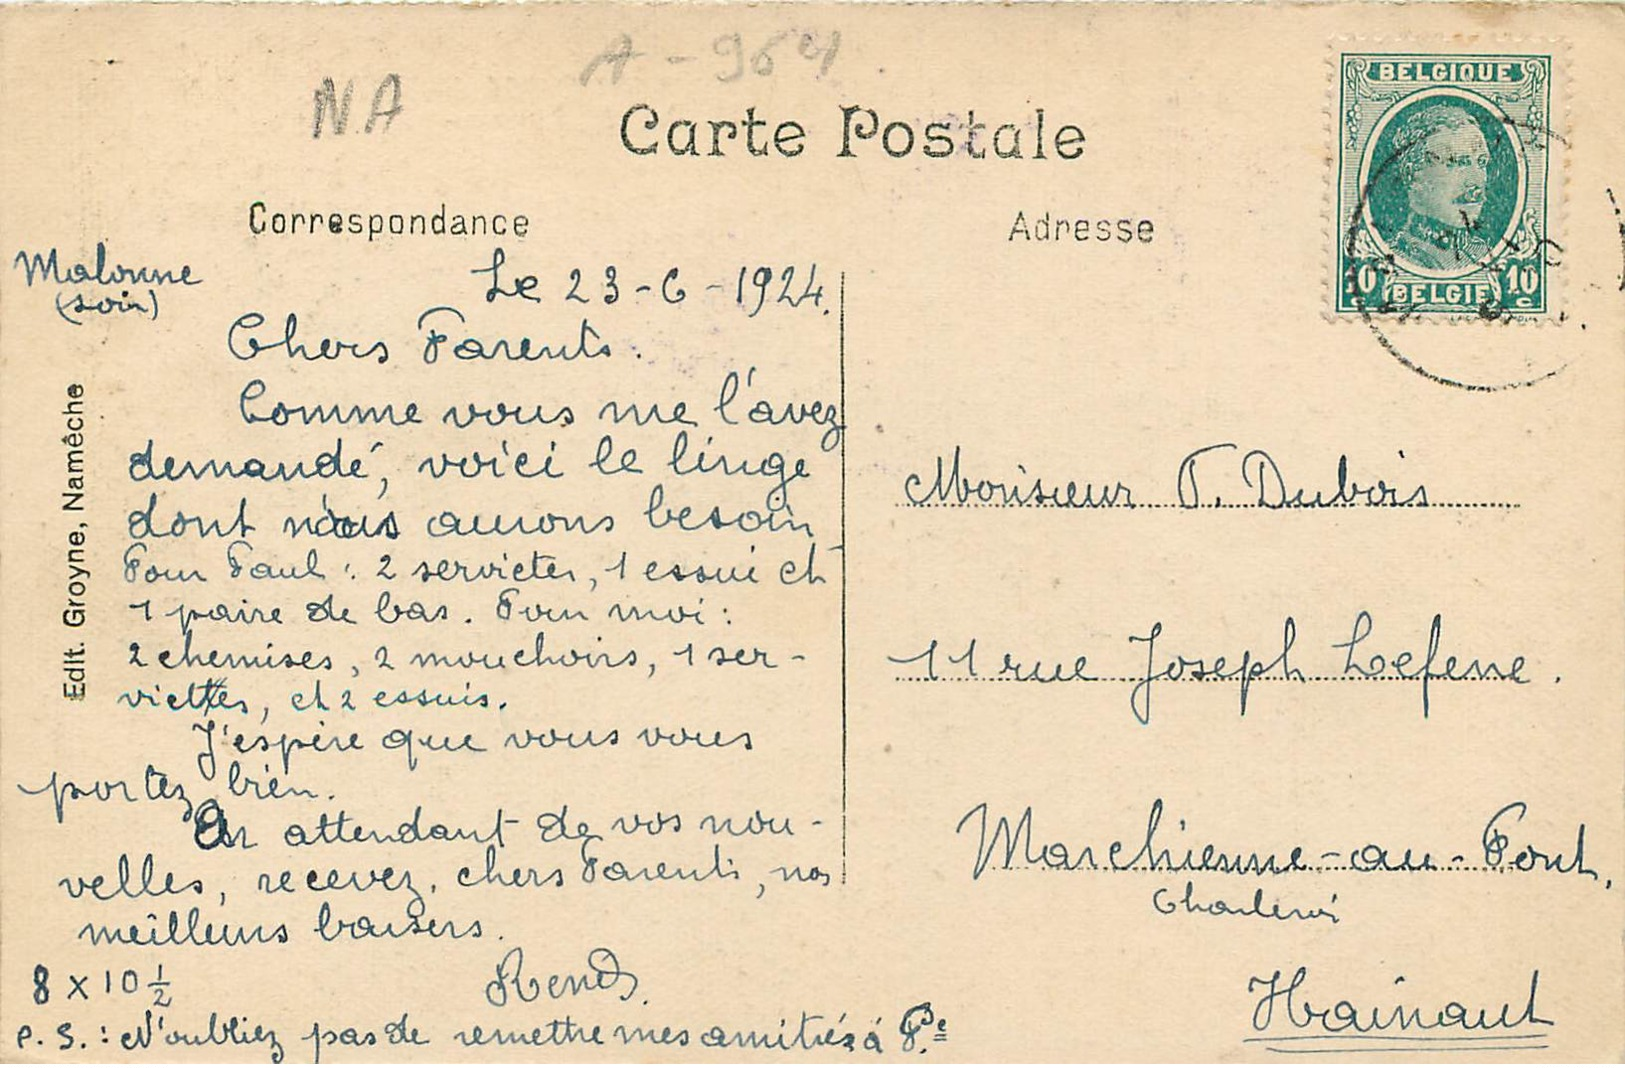 A - 964
NA
Carte Postale
Correspondance
Adresse
BELGIQUE
10 c BELGIE 10 c
Edit. Groyne, Namêche
Malonne
(soir)
Le 23-6-1924.
Chers Parents.
Comme vous me l'avez
demandé, voici le linge
dont nous aurons besoin
Pour Paul : 2 serviettes, 1 essui et
1 paire de bas. Pour moi :
2 chemises, 2 mouchoirs, 1 ser-
viettes, et 2 essuis.
J'espère que vous vous
portez bien.
En attendant de vos nou-
velles, recevez, chers Parents, nos
meilleurs baisers.
René
8 x 10 ½
P. S. : N'oubliez pas de remettre mes amitiés à
Monsieur F. Dubois
11 rue Joseph Lefevre.
Marchienne-au-Pont,
Charleroi
Hainaut